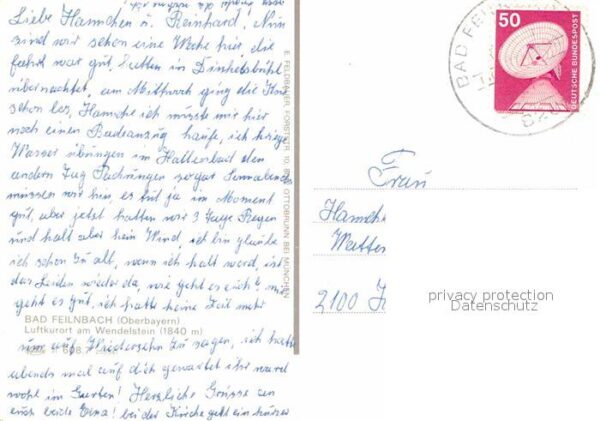 Liebe Hannchen u. Reinhard! Nun
sind wir schon eine Woche hier die
fahrt war gut hatten in Dinkelsbühl
übernachtet, am Mittwoch ging die Kur
schon los, Hannche ich müsste mir hier
noch einen Badeanzug kaufe, ich kriege
Wasser übungen im Hallenbad den
andern Tag Packungen sogar Sonnabend
müssen wir hin, es tut ja im Moment
gut, aber jetzt hatten wir 3 Tage Regen
und kalt aber kein Wind, ich bin glaube
ich schon zu alt, wenn ich kalt werd, ist
das Leiden wieder da, wie geht es euch? mir
geht es gut, ich hatte keine Zeit mehr
BAD FEILNBACH (Oberbayern)
Luftkurort am Wendelstein (1840 m)
um auf Wiedersehn zu sagen, ich hatte
abends mal auf dich gewartet ihr ward
wohl im Garten! Herzliche Grüsse an
euch beide Erna! bei der Kirche geht ein
E. FELDBAUER, FORSTSTR. 10, OTTOBRUNN BEI MÜNCHEN
BAD FEILNBACH
50
DEUTSCHE BUNDESPOST
Frau
Hannche
2100
privacy protection
Datenschutz